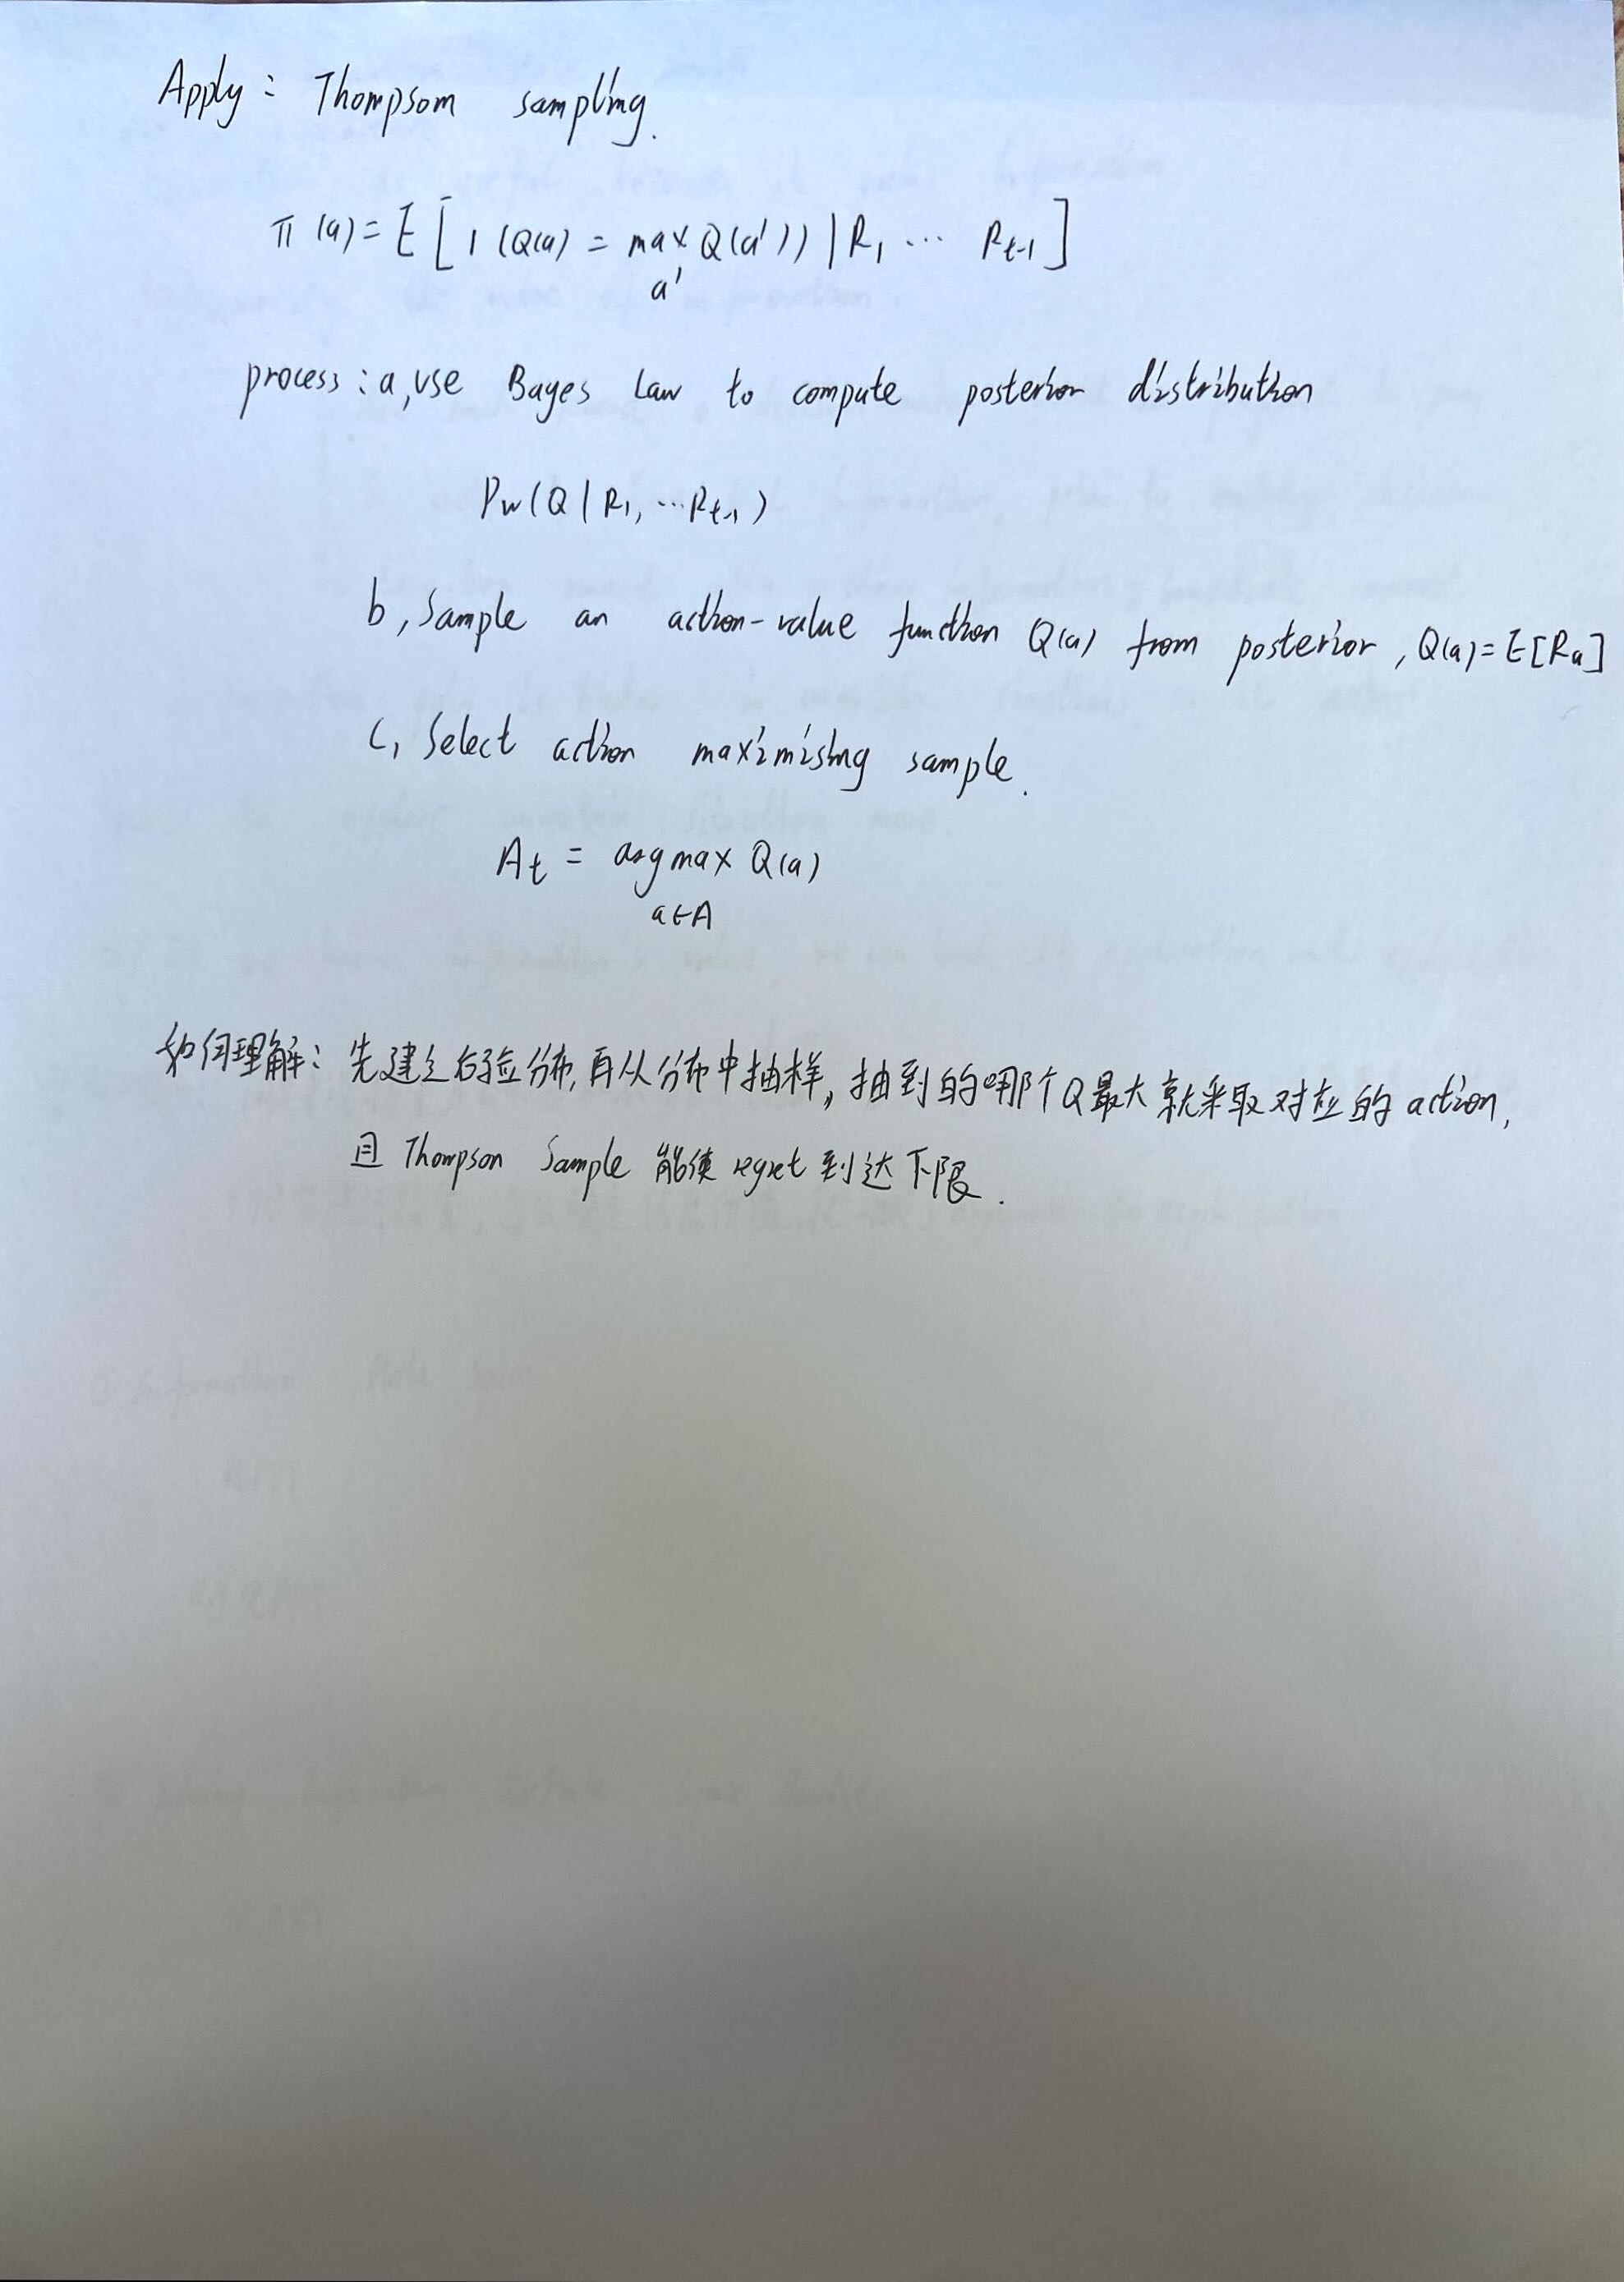 Apply: Thompsom sampling.
π(a) = E[1(Q(a) = max Q(a')) | R1 ... Rt-1]
a'
process: a, use Bayes Law to compute posterior distribution
Pw(Q | R1, ...Rt-1)
b, Sample an action-value function Q(a) from posterior, Q(a) = E[Ra]
c, Select action maximising sample.
At = argmax Q(a)
a∈A
如何理解: 先建立后验分布,再从分布中抽样,抽到的哪个Q最大就采取对应的action,
且 Thompson Sample 能使 regret 到达下限.